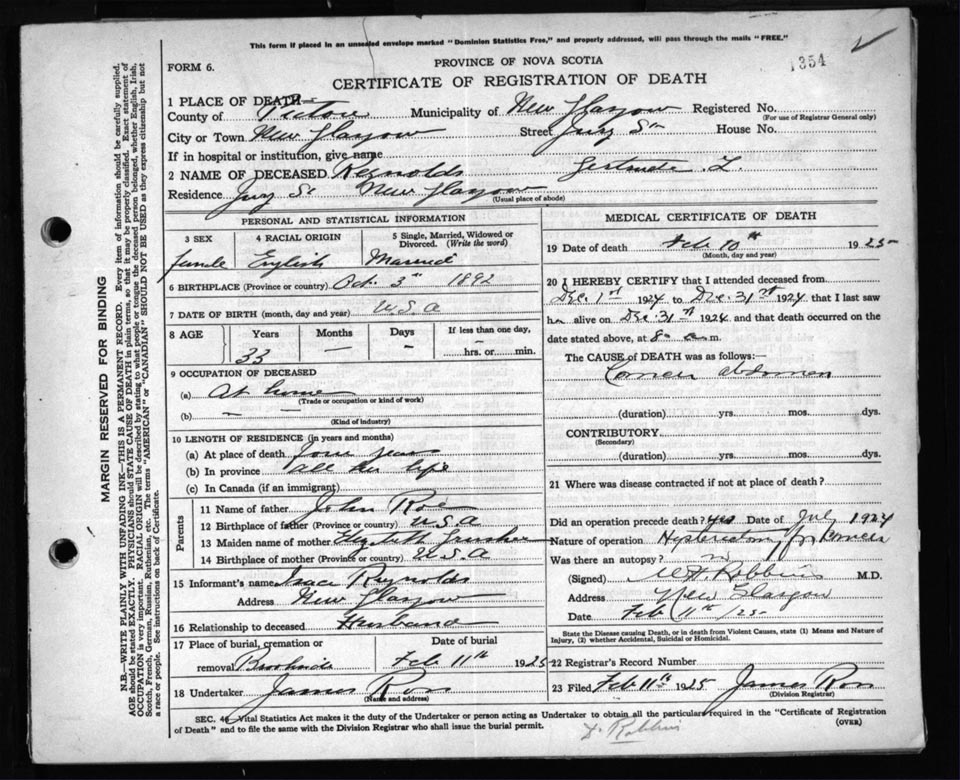 This form if placed in an unsealed envelope marked "Dominion Statistics Free," and properly addressed, will pass through the mails "FREE."
354
FORM 6.
PROVINCE OF NOVA SCOTIA
CERTIFICATE OF REGISTRATION OF DEATH
1 PLACE OF DEATH—
County of Pictou Municipality of New Glasgow Registered No.
(For use of Registrar General only)
City or Town New Glasgow Street Jury St House No.
If in hospital or institution, give name
2 NAME OF DECEASED Reynolds Gertrude L.
Residence Jury St New Glasgow
(Usual place of abode)
PERSONAL AND STATISTICAL INFORMATION
3 SEX 4 RACIAL ORIGIN 5 Single, Married, Widowed or Divorced. (Write the word)
female English Married
6 BIRTHPLACE (Province or country) Oct. 3rd 1892
7 DATE OF BIRTH (month, day and year) U.S.A
8 AGE Years Months Days If less than one day,
33 — — — hrs. or min.
9 OCCUPATION OF DECEASED
(a) At home
(Trade or occupation or kind of work)
(b) — —
(Kind of industry)
10 LENGTH OF RESIDENCE (in years and months)
(a) At place of death four years
(b) In province all her life
(c) In Canada (if an immigrant)
Parents
11 Name of father John
12 Birthplace of father (Province or country) U.S.A
13 Maiden name of mother Elizabeth
14 Birthplace of mother (Province or country) U.S.A
15 Informant's name Reynolds
Address New Glasgow
16 Relationship to deceased Husband
17 Place of burial, cremation or removal Date of burial
Feb 11th 1925
18 Undertaker James Ross
(Name and address)
MEDICAL CERTIFICATE OF DEATH
19 Date of death Feb 10th 1925
(Month, day and year)
20 I HEREBY CERTIFY that I attended deceased from
Dec. 1st 1924 to Dec. 31st 1924 that I last saw
her alive on Dec. 31st 1924 and that death occurred on the
date stated above, at 8 a m.
The CAUSE of DEATH was as follows:—
Cancer abdomen
(duration) yrs. mos. dys.
CONTRIBUTORY
(Secondary)
(duration) yrs. mos. dys.
21 Where was disease contracted if not at place of death?
Did an operation precede death? yes Date of July 1924
Nature of operation Hysterectomy for Cancer
Was there an autopsy? no
(Signed) W.H. Robbins M.D.
Address New Glasgow
Date Feb 11th/25
State the Disease causing Death, or in death from Violent Causes, state (1) Means and Nature of Injury, (2) whether Accidental, Suicidal or Homicidal.
22 Registrar's Record Number
23 Filed Feb 11th 1925 James Ross
(Division Registrar)
SEC. 46 Vital Statistics Act makes it the duty of the Undertaker or person acting as Undertaker to obtain all the particulars required in the "Certificate of Registration
of Death" and to file the same with the Division Registrar who shall issue the burial permit. (OVER)
Robbins
MARGIN RESERVED FOR BINDING
N.B.—WRITE PLAINLY WITH UNFADING INK—THIS IS A PERMANENT RECORD. Every item of information should be carefully supplied.
AGE should be stated EXACTLY. PHYSICIANS should STATE CAUSE OF DEATH in plain terms, so that it may be properly classified. Exact statement of
OCCUPATION is very important. RACIAL ORIGIN will be described by stating to what people or tongue the deceased person belonged, whether English, Irish,
Scotch, French, German, Russian, Ruthenian, etc. The terms "AMERICAN" or "CANADIAN" SHOULD NOT BE USED as they express citizenship but not
a race or people. See instructions on back of Certificate.